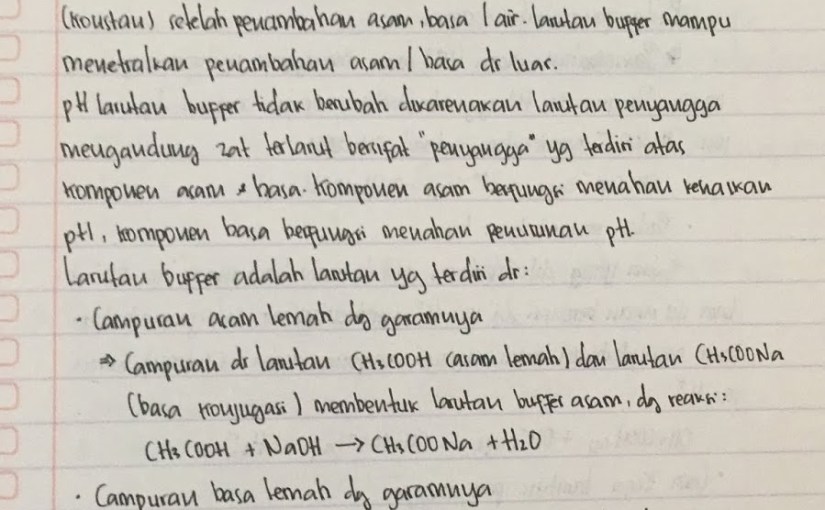 (konstan) setelah penambahan asam, basa / air. larutan buffer mampu
menetralkan penambahan asam / basa dr luar.
pH larutan buffer tidak berubah dikarenakan larutan penyangga
mengandung zat terlarut bersifat "penyangga" yg terdiri atas
komponen asam & basa. Komponen asam berfungsi menahan kenaikan
pH, komponen basa berfungsi menahan penurunan pH.
Larutan buffer adalah larutan yg terdiri dr:
• Campuran asam lemah dg garamnya
⇒ Campuran dr larutan CH3COOH (asam lemah) dan larutan CH3COONa
(basa konjugasi) membentuk larutan buffer asam, dg reaksi:
CH3COOH + NaOH → CH3COONa + H2O
• Campuran basa lemah dg garamnya